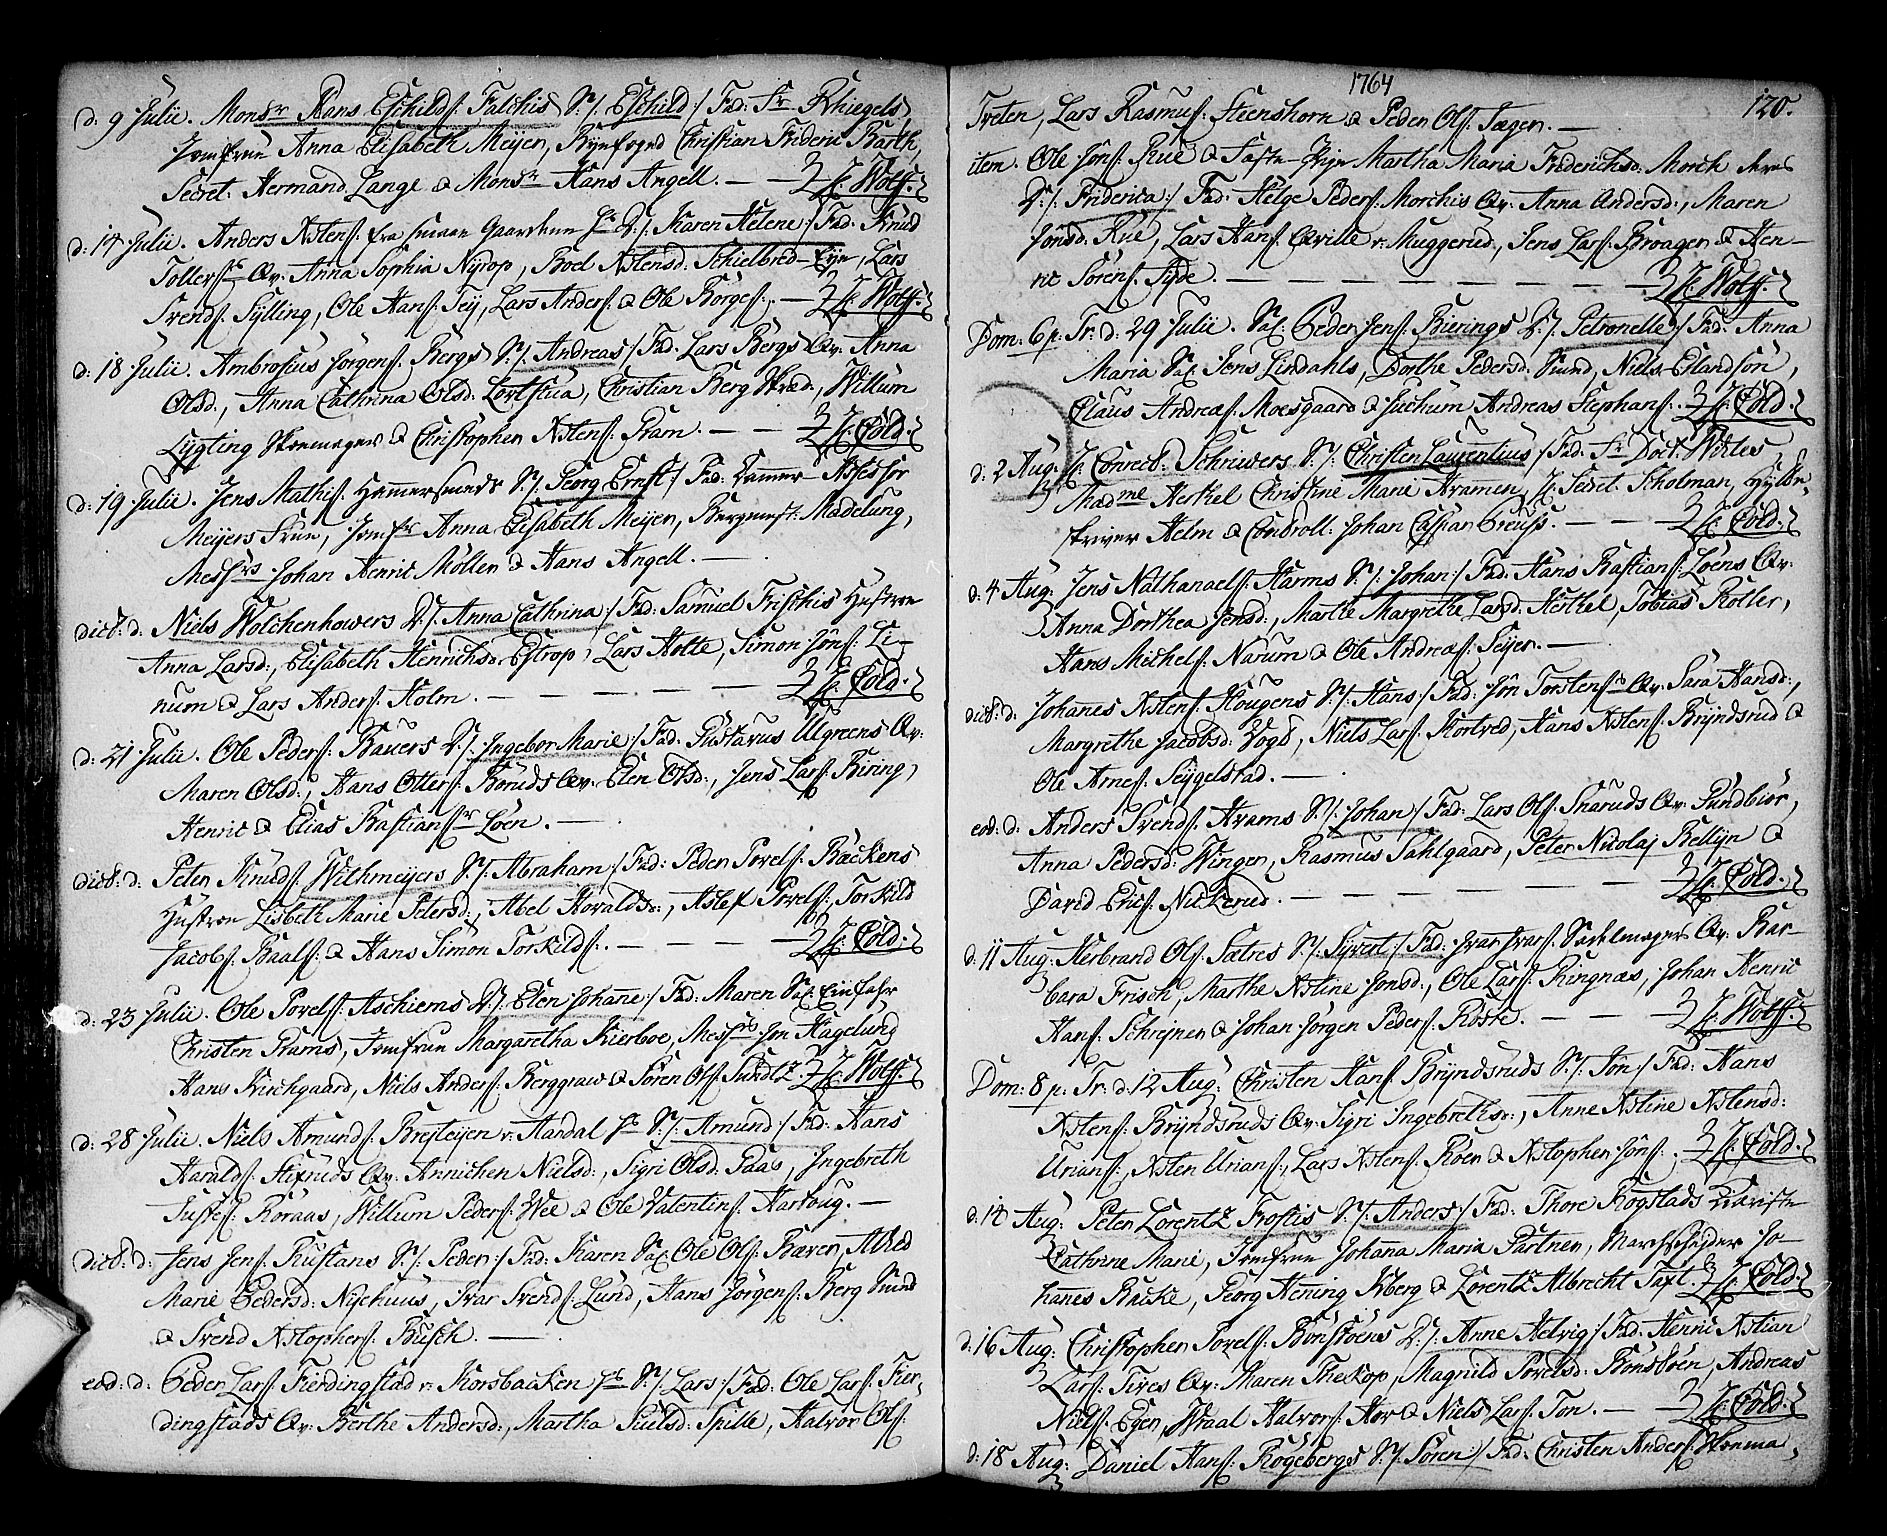 d. 9 Julii. Monsr Hans Eschilds: Falchis S: /: Eschild :/ Fad: Sr Rhiegels,
Jomfrue Anna Elisabeth Meyer, Byefoged Christian Frideric Barth,
Secret. Hermand Lange & Monsr Hans Angell. — H: Wolf.
d: 14 Julii. Anders Astens: fra Gaarden D: /: Karen Helene :/ Fad: Knud
Tollers: Qv: Anna Sophia Nyrop, Boel Astensd: Schielbred-Eye, Lars
Svends: Sylling, Ole Hans: Tey, Lars Anders: & Ole Börges: — H: Wolf.
d: 18 Julii. Ambrosius Jörgens: Bergs S: /: Andreas :/ Fad. Lars Bergs Qv: Anna
Olsd:, Anna Cathrina Olsd: Lortstua, Christian Berg Skræd:, Willum
Lygting Skoemager & Christopher Astens: Pram. — H: Cold.
d: 19 Julii. Jens Mathis: Hammersmeds S: /: Georg Ernst :/ Fad: Cammer Assessor
Meyers Frue, Jomfr Anna Elisabeth Meyer, Bergmest: Madelung,
Messrs Johan Henric Möller & Hans Angell. —
dict: d. Niels Wolchenhowers D: /: Anna Cathrina :/ Fad: Samuel Frischis Hustroe
Anna Larsd:, Elisabeth Henrichsd: Estrop, Lars Holte, Simon Jöns: Li-
num & Lars Anders: Holm. — H: Cold.
d: 21 Julii. Ole Peders: Bauers D: /: Ingebor Marie :/ Fad: Gustavus Ulgreens Qv:
Maren Olsd:, Hans Otters: Boruds Qv: Elen Olsd:, Jens Lars: Biring,
Henric & Elias Bastiansr Löen. —
dict: d. Peter Knuds: Withmeyers S: /: Abraham :/ Fad: Peder Povels: Backens
Hustroe Lisbeth Marie Petersd:, Abel Horaldsd:, Aslef Povels: Torkild
Jacobs: Baals: & Hans Simon Torkilds: — H: Cold.
d: 23 Julii. Ole Povels: Aschiems D: /: Elen Johane :/ Fad: Maren Sal: Einfahr
Christen Prams, Jomfrue Margaretha Kierboe, Messrs Jon Hagelund
Hans Kirchgaard, Niels Anders: Berggraw & Sören Ols: Sundtz. H: Wolf.
d: 28 Julii. Niels Amunds: Brejleyen v: Aardal S: /: Amund :/ Fad: Hans
Haralds: Stixruds Qv: Annichen Nielsd:, Sigri Olsd: Paas, Ingebreth
Justes: Koraas, Willum Peders: Wee & Ole Valentins: Aartoug. —
dict: d: Jens Jens: Rustans S: /: Peder :/ Fad: Karen Sal: Ole Ols: Barer, Alhed
Marie Pedersd: Nyehuus, Ivar Svends: Lund, Hans Jörgens: Berg Smed
& Svend Astophers: Busch. —
eod: d: Peder Lars: Fierdingstad v: Korsbacken S: /: Lars :/ Fad: Ole Lars: Fier-
dingstads Qv: Berthe Andersd:, Martha Juelsd: Spille, Halvor Ols:
1764
120.
Treten, Lars Rasmus: Steenshorn & Peder Ols: Tægen. —
item. Ole Jöns: Rue & Martha Maria Friderichsd: Morch deres
D: /: Friderica :/ Fad. Helge Peders: Morchis Qv: Anna Andersd:, Maren
Jönsd: Rue, Lars Hans: Qville v: Muggerud, Jens Lars: Braagen & Hen-
ric Sörens: Fyde. — H: Wolf.
Dom: 6 p: Tr: d: 29 Julii. Sal: Peder Jens: Bierings D: /: Petronelle :/ Fad: Anna
Maria Sal: Jens Lindahls, Dorthe Pedersd: Smed, Niels Erlandson,
Claus Andreæ Moesgaard & Juchum Andreas Stephans: H: Cold.
d: 2 Aug: H: Conrect: Schriwers S: /: Christen Laurentius :/ Fad: Sr Doct: Weiles,
Madme Herkel Christine Marie Aramen, H: Secret. Scholman, Hytte-
skriver Helm & Controll: Johan Caspar Preuss. — H: Cold.
d: 4 Aug: Jens Nathanaels: Harms S: /: Johan :/ Fad: Hans Bastians: Löens Qv:
Anna Dorthea Jensd:, Marthe Margrethe Larsd: Herkel, Tobias Roller,
Hans Michels: Narum & Ole Andreæs: Seyer. —
dict: d: Johanes Astens: Hougens S: /: Hans :/ Fad: Jön Torstens: Qv: Sara Hansd:,
Margrethe Jacobsd: Vogt, Niels Lars: Kortved, Hans Astens: Bryndsrud &
Ole Arnes: Seygelstad. —
eod: d: Anders Svends: Arams S: /: Johan :/ Fad: Lars Ols: Snaruds Qv: Gundbiör,
Anna Pedersd: Winger, Rasmus Sahlgaard, Peter Nicolaj Bellyn &
David Erics: Nickerud. — H: Cold.
d: 11 Aug: Herbrand Ols: Sætres S: /: Syvert :/ Fad: Ivar Ivars: Sadelmagers Qv: Bar-
bara Frisch, Marthe Astine Jonsd:, Ole Lars: Ringnæs, Johan Henric
Hans: Schrejner & Johan Jörgen Peders: Röste. — H: Wolf.
Dom: 8 p: Tr: d: 12 Aug: Christen Hans: Bryndsruds S: /: Jön :/ Fad: Hans
Astens: Bryndsruds Qv: Sigri Ingebrethsd:, Anne Astine Astensd:
Urians:, Asten Urians:, Lars Astens: Röen & Astopher Jöns: H: Cold.
d: 14 Aug: Peter Lorentz Frostis S: /: Anders :/ Fad: Thore Rogstads
Cathrine Marie, Jomfrue Johana Maria Pärtner, Marchschejder Jo-
hanes Backe, Georg Hening Kberg & Lorentz Albrecht Taxt. H: Cold.
d: 16 Aug: Christopher Povels: Bonstöens D: /: Anne Helvig :/ Fad: Henric Astian
Lars: Tires Qv: Maren Theckop, Magnild Povelsd: Bonstöen, Andreas
Niels: Egen, Wraal Halvors: Hov & Niels Lars: Ton. — H: Cold.
d: 18 Aug: Daniel Hans: Rögebergs S: /: Sören :/ Fad: Christen Anders: Skoema-